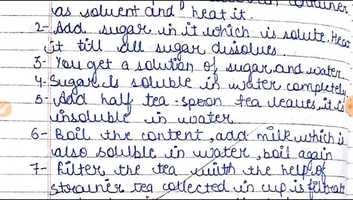 as solvent and heat it.
2- Add sugar in it which is solute. Heat
it till all sugar dissolves.
3- You get a solution of sugar and water.
4- Sugar is soluble in water completely
5- Add half tea-spoon tea leaves, it is
insoluble in water
6- Boil the content, add milk which is
also soluble in water, boil again
7- Filter the tea with the help of
strainer tea collected in cup is filtrate